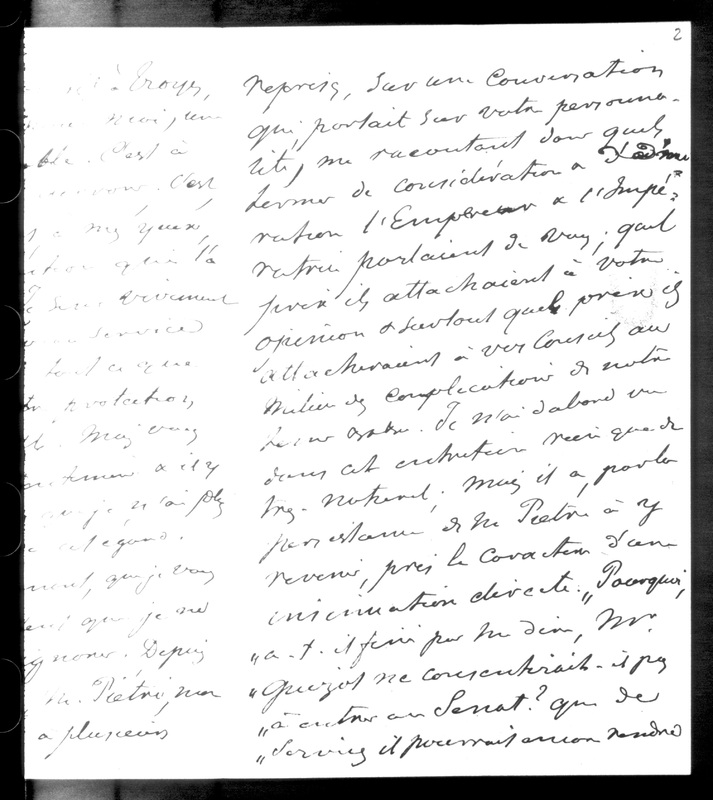 2
à Troyes,
moi, une
C'est à
C'est
à mes yeux,
qu'il l'a
Je suis vivement
services
tout ce que
protection
Mais vous
& il y
que je n'ai plus
cet égard.
que je vous
que je ne
ignorer. Depuis
M. Piétri, mon
a plusieurs
repris, sur une conversation
qui portait sur votre personna-
lité, me racontant dans quels
termes de considération & d'admi
ration l'Empereur & l'Impé-
ratrice parlaient de vous; quel
prix ils attachaient à votre
opinion & surtout quel prix ils
attacheraient à vos conseils au
milieu des complications de notre
temps. Je n'ai d'abord vu
dans cet entretien rien que de
très-naturel; mais il a, par la
persistance de M. Piétri à y
revenir, pris le caractère d'une
insinuation directe. „Pourquoi,
„a-t-il fini par me dire, Mr.
„Guizot ne consentirait-il pas
„à entrer au Senat? que de
„services il pourrait encore rendre